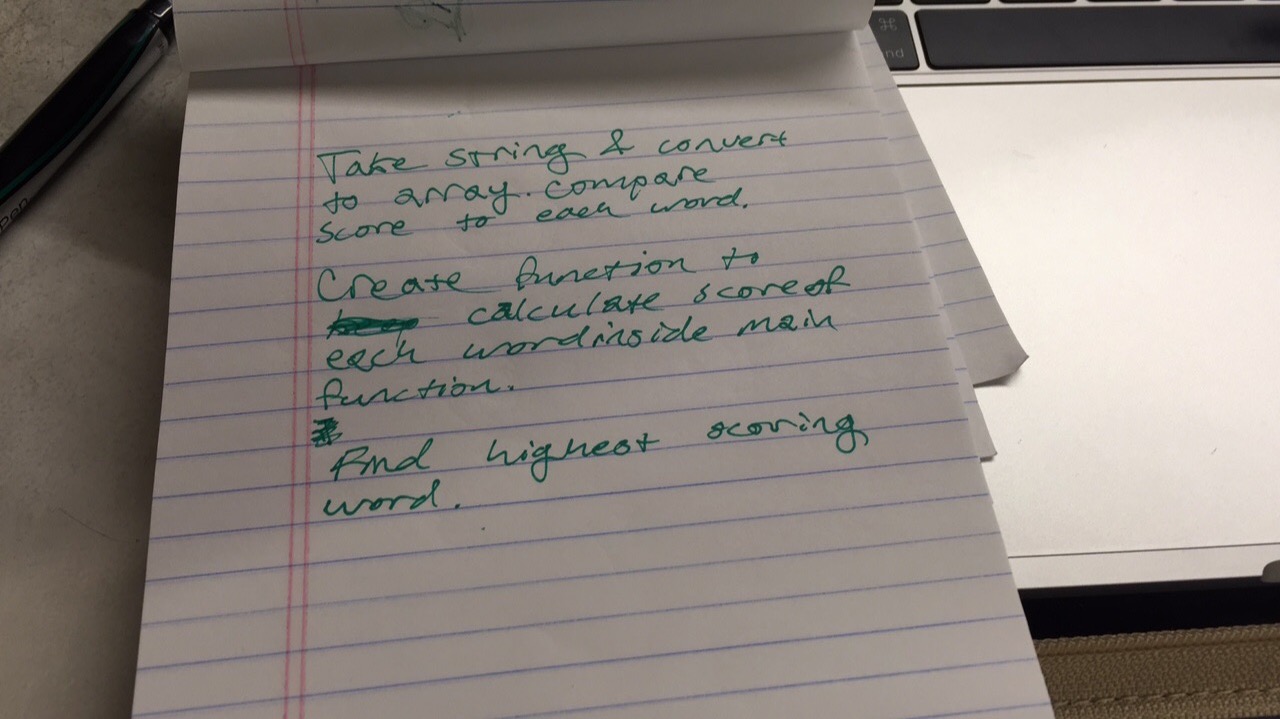 Take string & convert
to array. Compare
score to each word.
Create function to
calculate score of
each word inside main
function.
Find highest scoring
word.
⌘
nd
pen